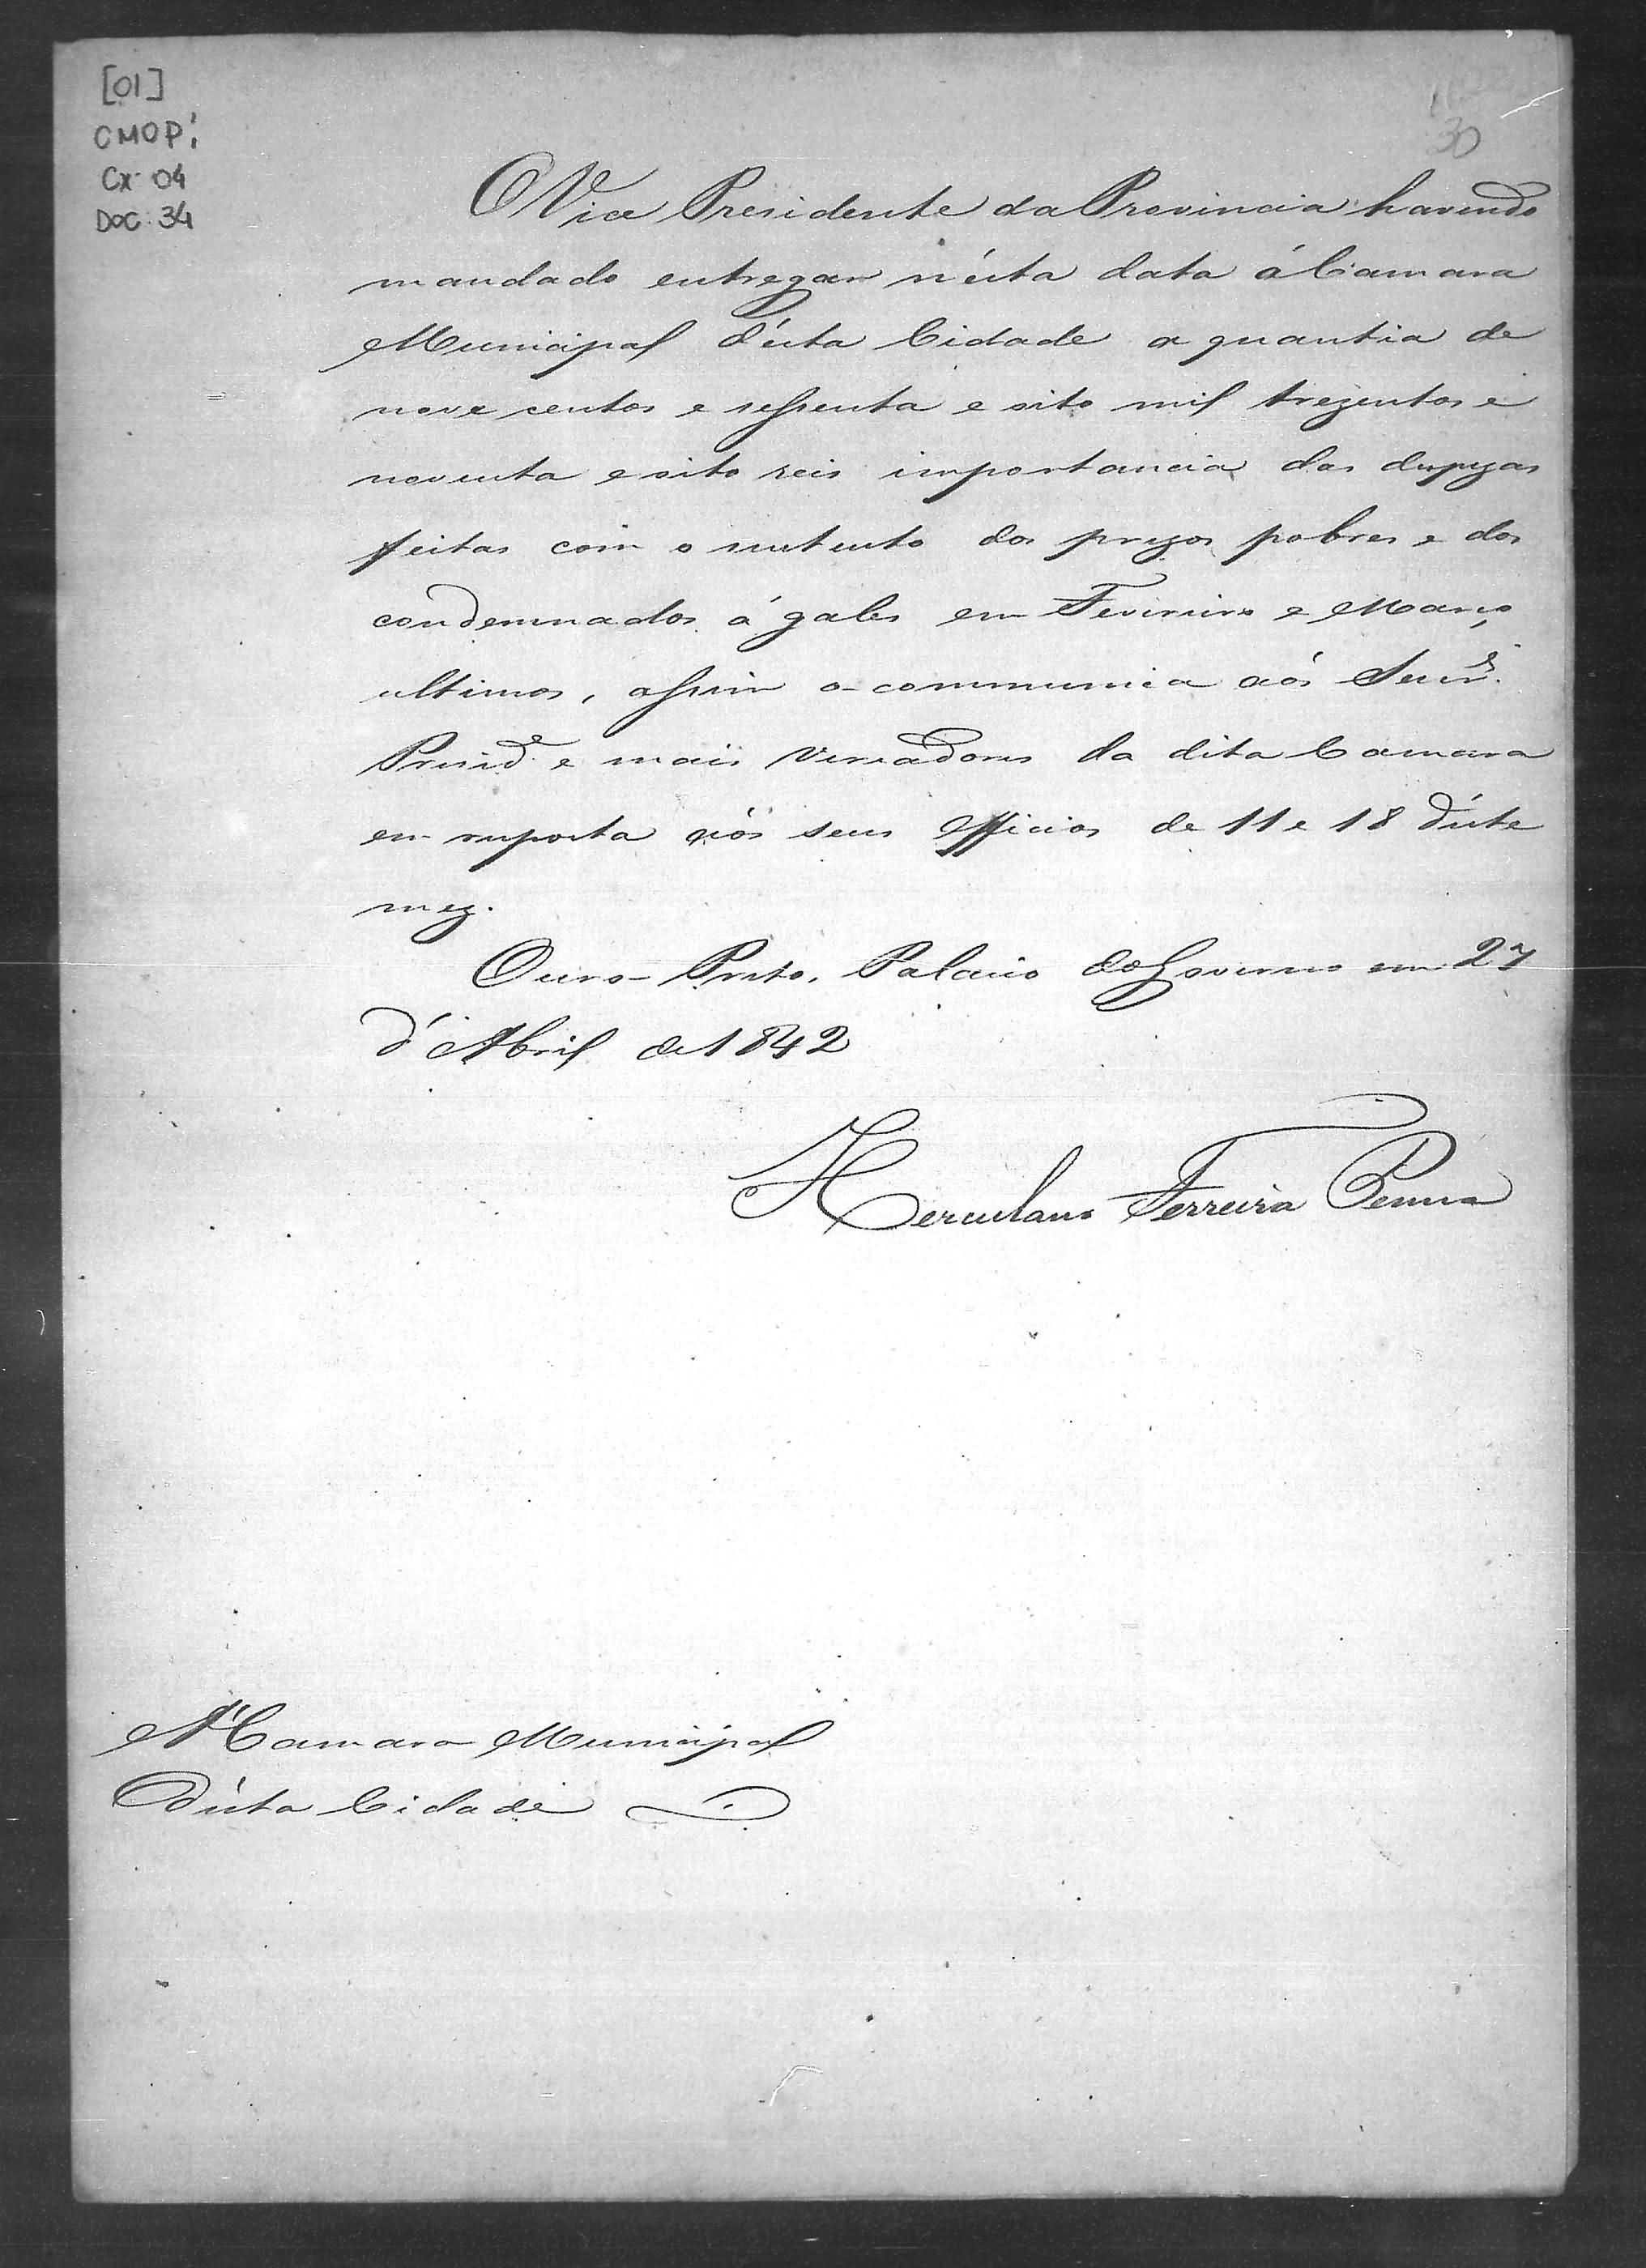 [01]
CMOP.
Cx 04
Doc. 34
30
O Vice Presidente da Provincia havendo
mandado entregar n'ésta data á Camara
Municipal d'ésta Cidade a quantia de
nove centos e sessenta e oito mil trezentos e
noventa e oito reis importancia das despezas
feitas com o sustento dos prezos pobres e dos
condemnados á galés em Fevereiro e Março
ultimos, assim o communica aós Senr.es
Presid.e e mais Vereadores da dita Camara
em resposta aós seus officios de 11 e 18 d'éste
mez.
Ouro-Preto, Palacio do Governo em 27
d'Abril de 1842
Herculano Ferreira Penna
A' Camara Municipal
d'ésta Cidade